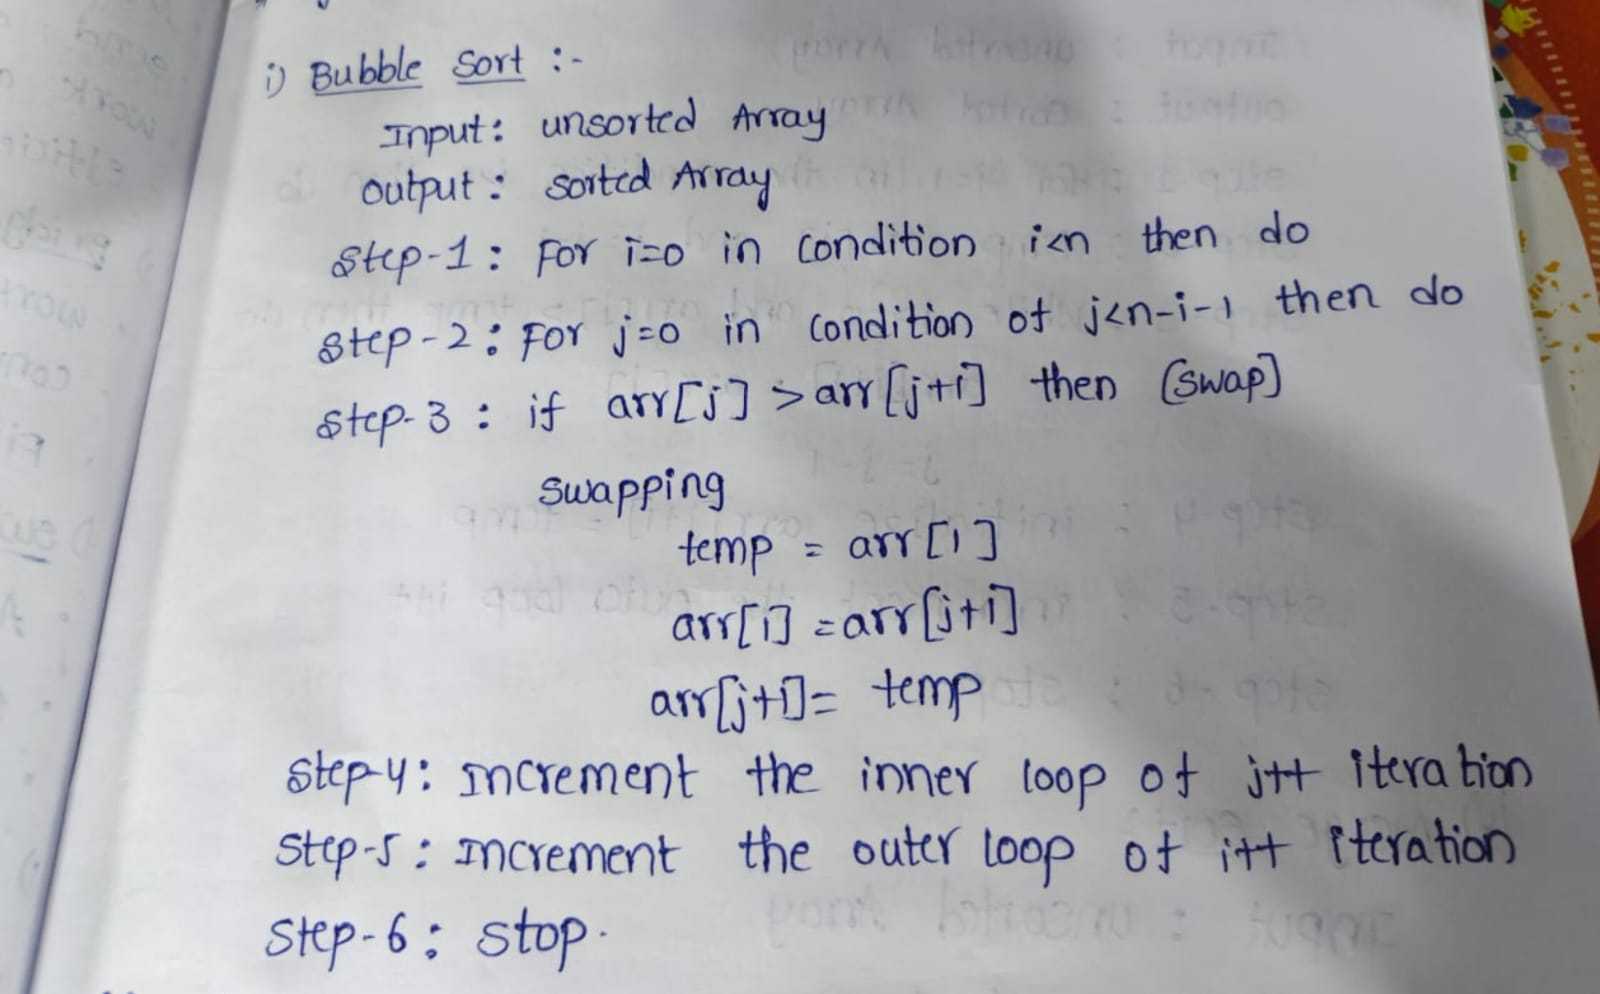 i) Bubble Sort :-
Input: unsorted Array
output: sorted Array
Step-1: For i=0 in condition i<n then do
Step-2: For j=0 in condition of j<n-i-1 then do
Step-3: if arr[j] > arr[j+i] then (swap]
swapping
temp = arr[i]
arr[i] = arr[j+i]
arr[j+i] = temp
Step-4: Increment the inner loop of j++ iteration
Step-5: Increment the outer loop of i++ iteration
Step-6: stop.